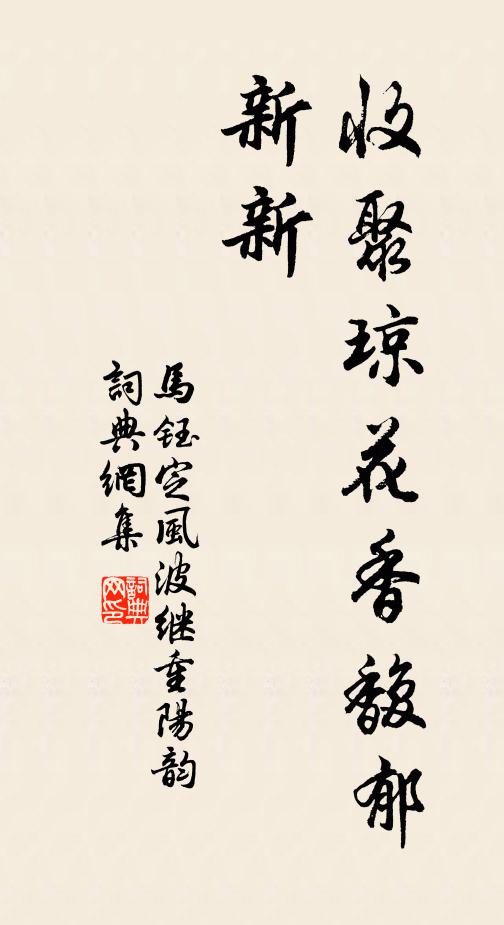 收聚琼花香馥郁
新新
馬鈺定風波继重陽韵
詞典網集
詞典网印